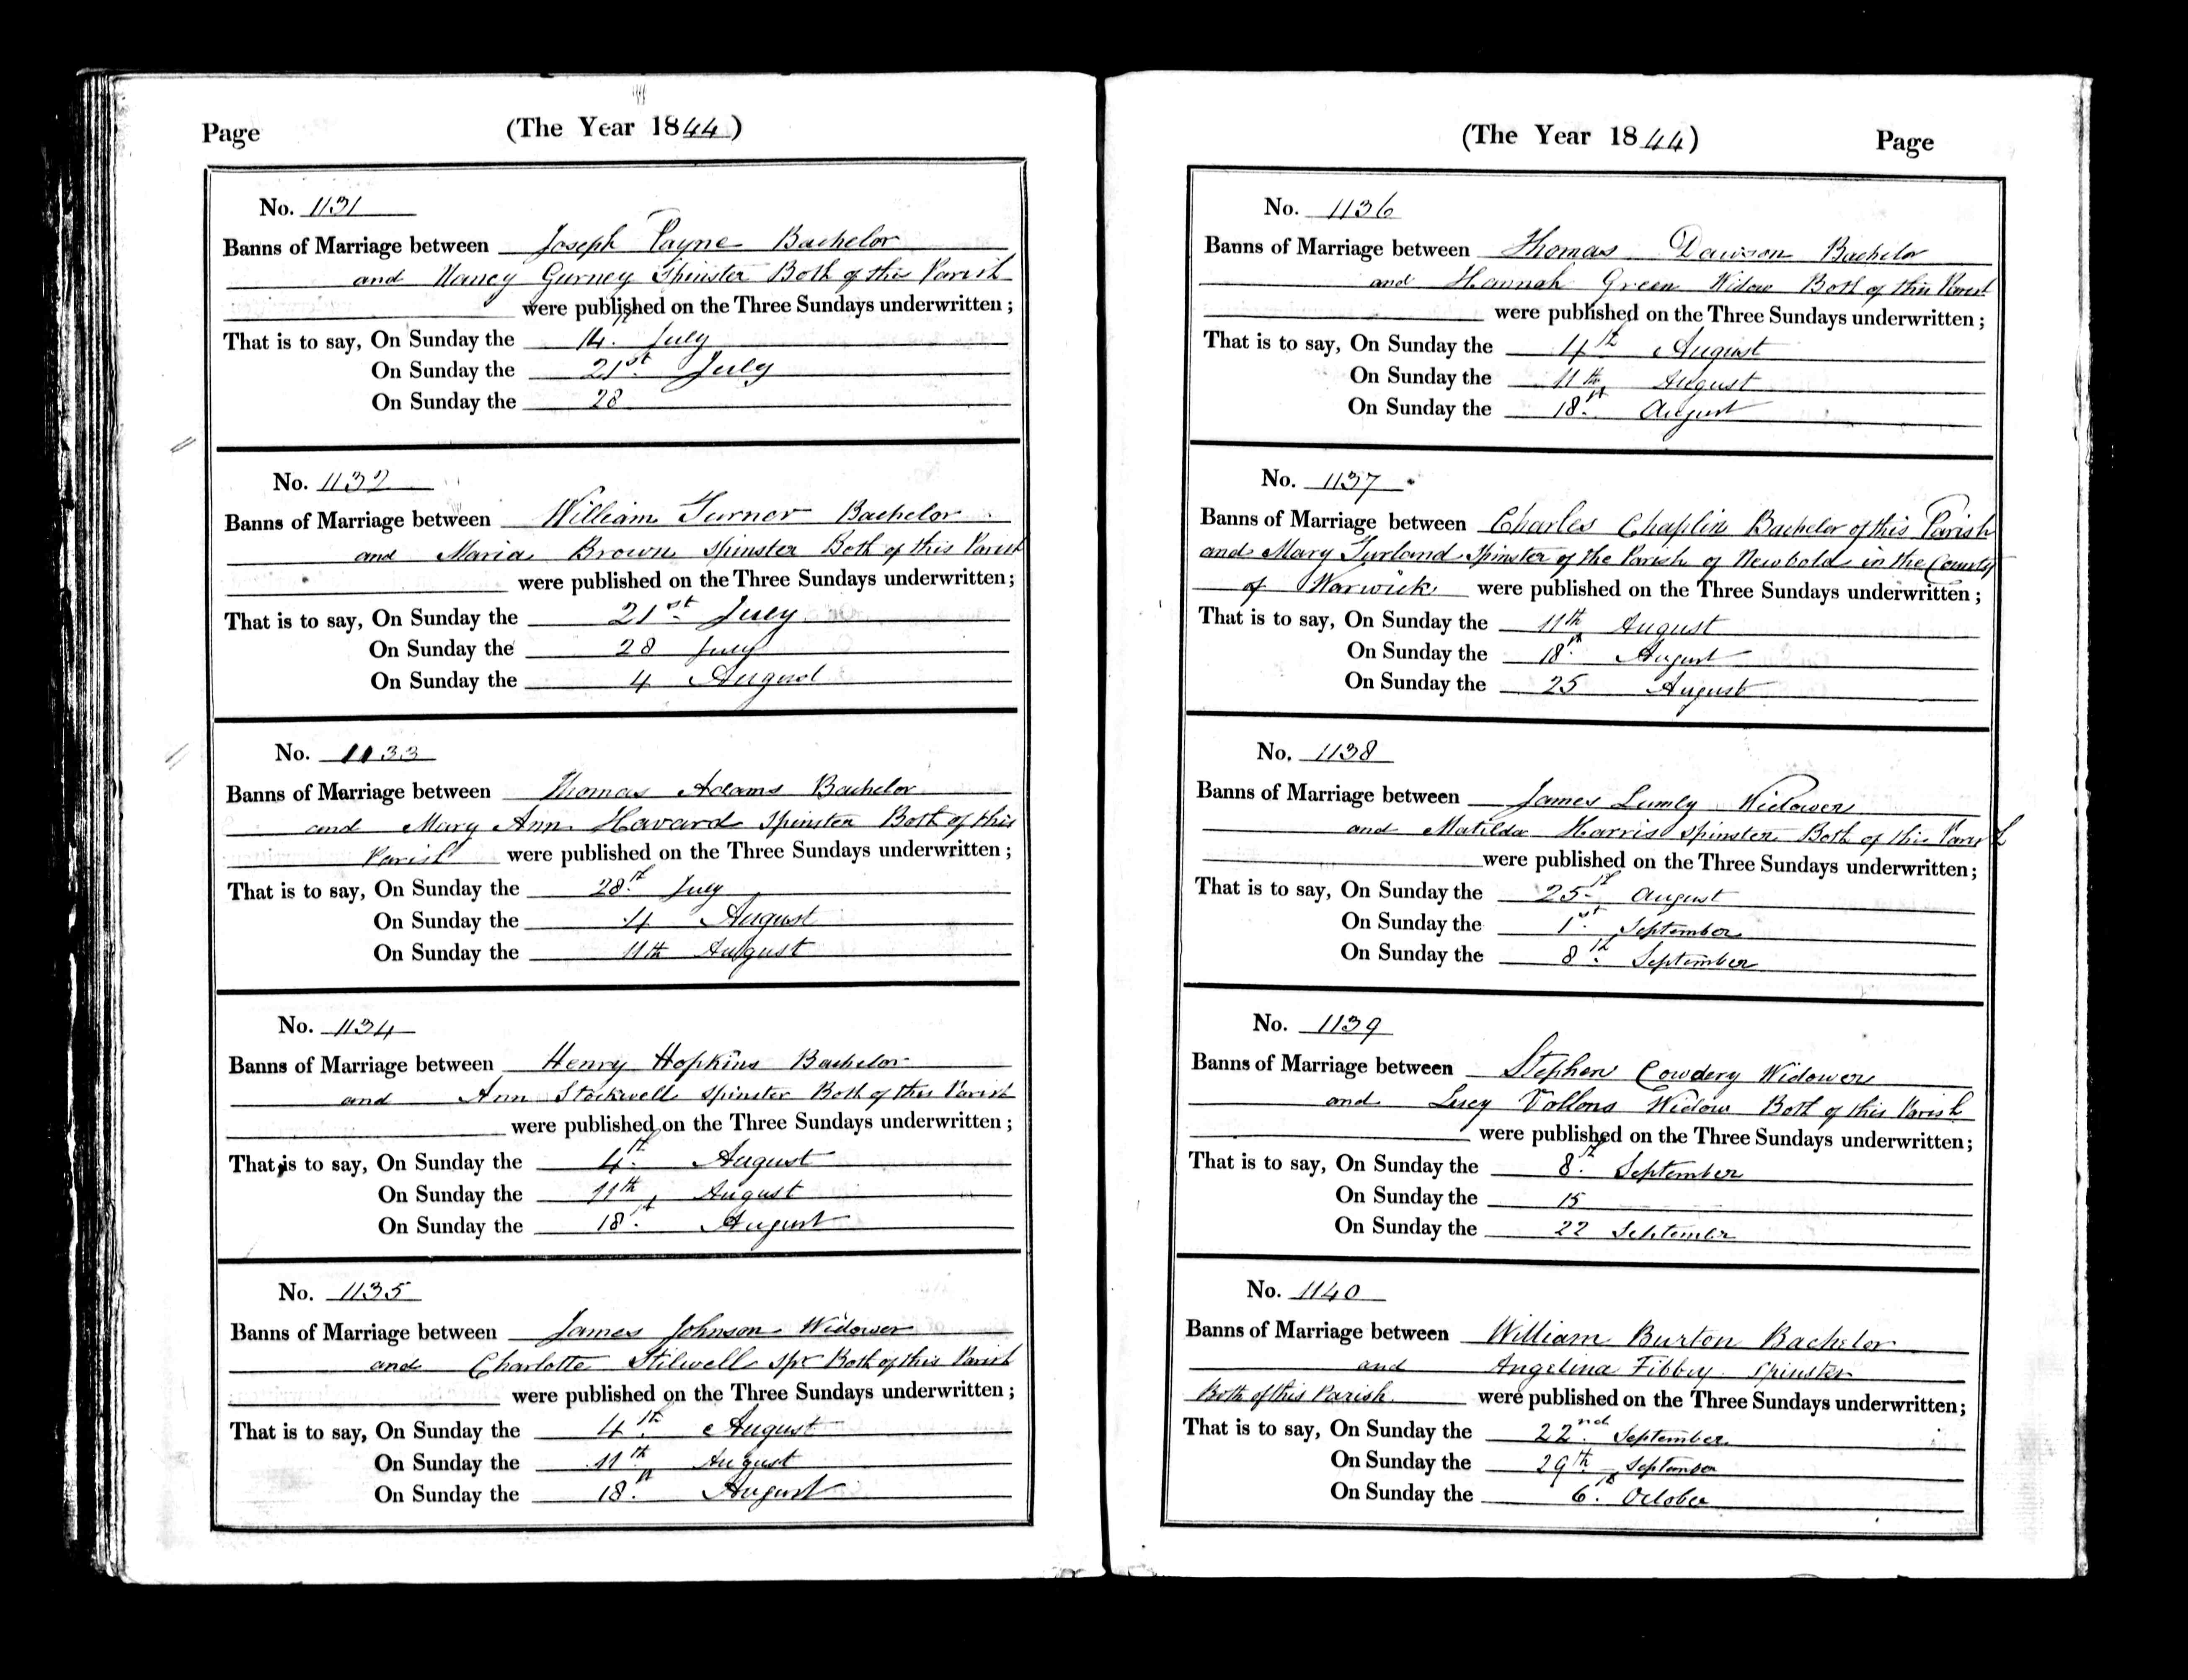 Page (The Year 1844)
No. 1131
Banns of Marriage between Joseph Payne Bachelor
and Nancy Gurney Spinster Both of this Parish
were published on the Three Sundays underwritten;
That is to say, On Sunday the 14th July
On Sunday the 21st July
On Sunday the 28
No. 1132
Banns of Marriage between William Turner Bachelor
and Maria Brown Spinster Both of this Parish
were published on the Three Sundays underwritten;
That is to say, On Sunday the 21st July
On Sunday the 28 July
On Sunday the 4 August
No. 1133
Banns of Marriage between Thomas Adams Bachelor
and Mary Ann Havard Spinster Both of this
Parish were published on the Three Sundays underwritten;
That is to say, On Sunday the 28th July
On Sunday the 4 August
On Sunday the 11th August
No. 1134
Banns of Marriage between Henry Hopkins Bachelor
and Ann Stockwell Spinster Both of this Parish
were published on the Three Sundays underwritten;
That is to say, On Sunday the 4th August
On Sunday the 11th August
On Sunday the 18th August
No. 1135
Banns of Marriage between James Johnson Widower
and Charlotte Stilwell Spr Both of this Parish
were published on the Three Sundays underwritten;
That is to say, On Sunday the 4th August
On Sunday the 11th August
On Sunday the 18th August
(The Year 1844) Page
No. 1136
Banns of Marriage between Thomas Dawson Bachelor
and Hannah Green Widow Both of this Parish
were published on the Three Sundays underwritten;
That is to say, On Sunday the 4th August
On Sunday the 11th August
On Sunday the 18th August
No. 1137
Banns of Marriage between Charles Chaplin Bachelor of this Parish
and Mary Turland Spinster of the Parish of Newbold in the County
of Warwick were published on the Three Sundays underwritten;
That is to say, On Sunday the 11th August
On Sunday the 18th August
On Sunday the 25 August
No. 1138
Banns of Marriage between James Lumly Widower
and Matilda Harris Spinster Both of this Parish
were published on the Three Sundays underwritten;
That is to say, On Sunday the 25th August
On Sunday the 1st September
On Sunday the 8th September
No. 1139
Banns of Marriage between Stephen Cowdery Widower
and Lucy Vollons Widow Both of this Parish
were published on the Three Sundays underwritten;
That is to say, On Sunday the 8th September
On Sunday the 15
On Sunday the 22 September
No. 1140
Banns of Marriage between William Burton Bachelor
and Angelina Fibbey Spinster
Both of this Parish were published on the Three Sundays underwritten;
That is to say, On Sunday the 22nd September
On Sunday the 29th September
On Sunday the 6th October